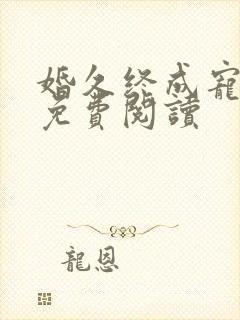 婚久终成寵
免費閱讀
龍恩